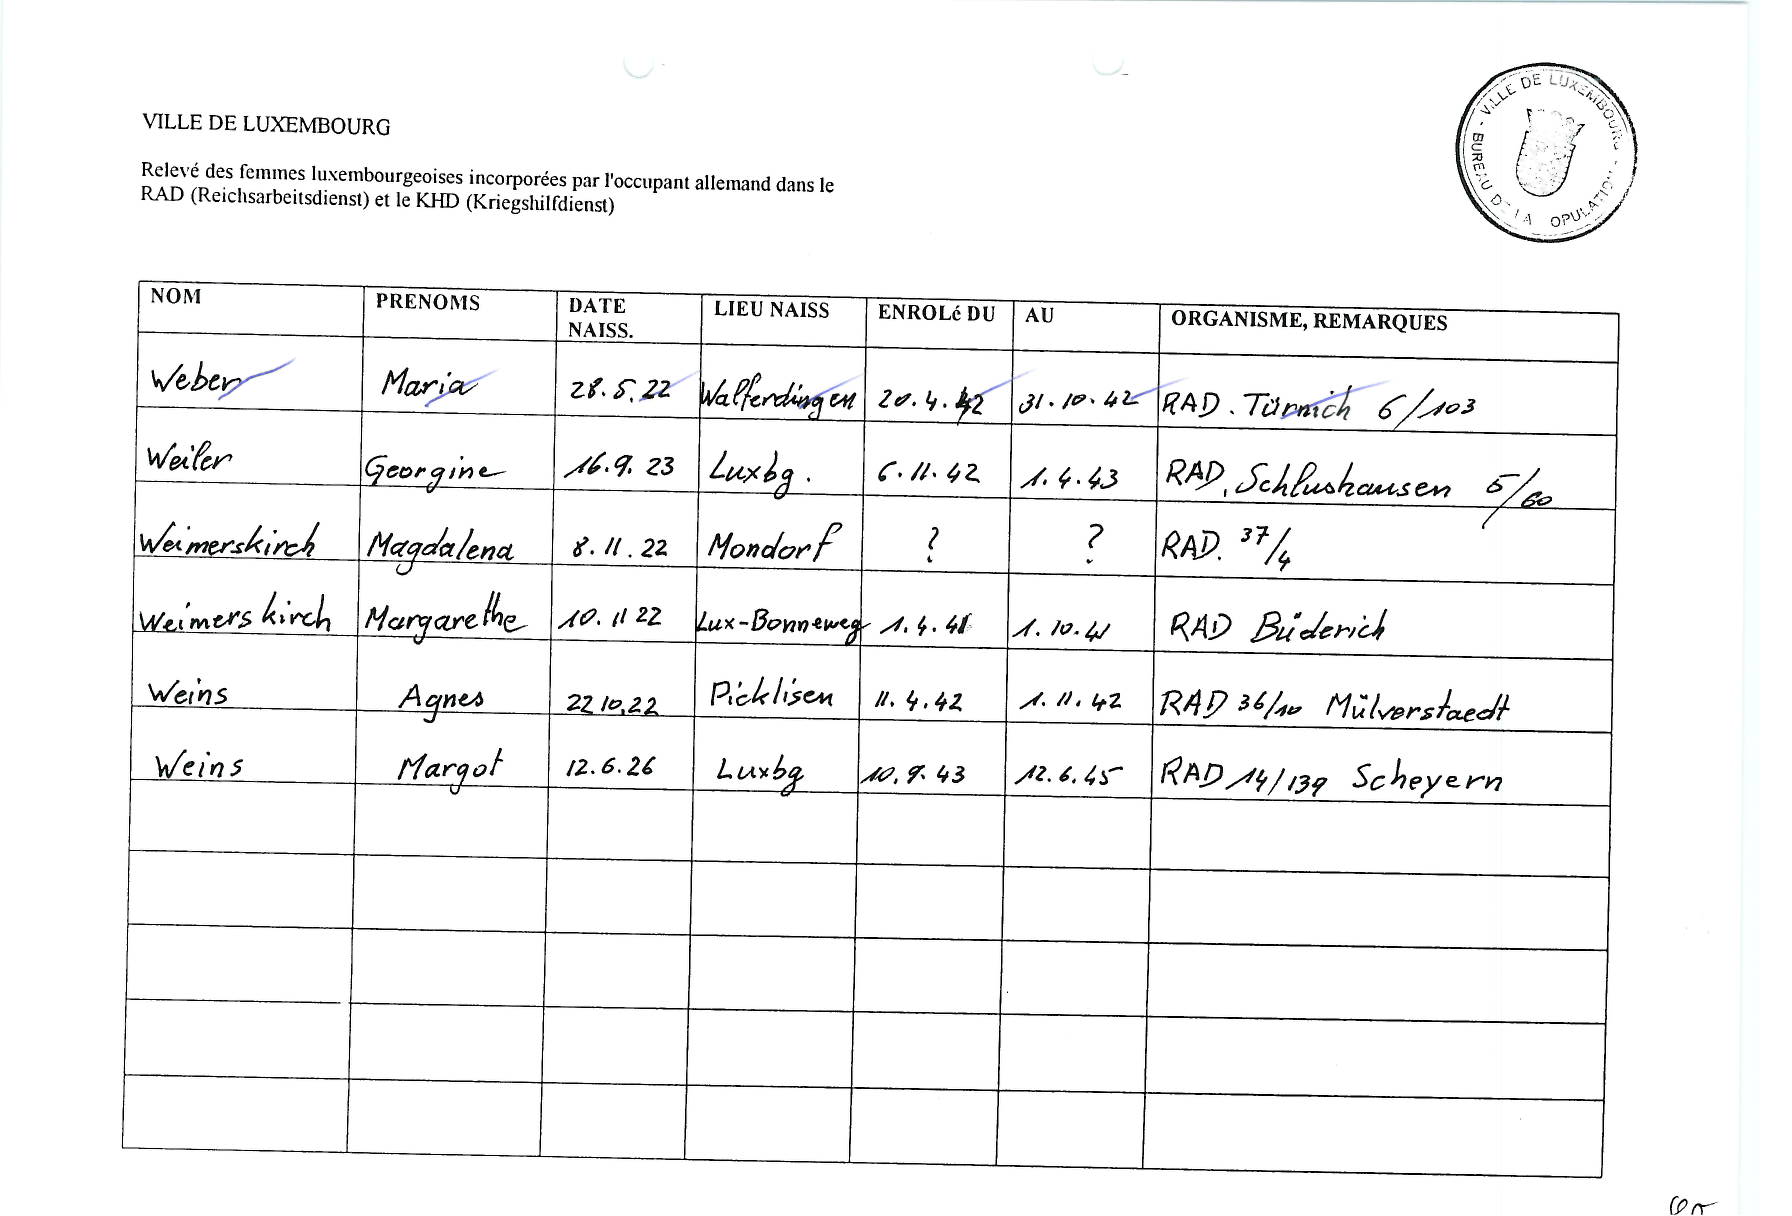 VILLE DE LUXEMBOURG
Relevé des femmes luxembourgeoises incorporées par l'occupant allemand dans le
RAD (Reichsarbeitsdienst) et le KHD (Kriegshilfdienst)
VILLE DE LUXEMBOURG - BUREAU DE LA OPULATION -
NOM PRENOMS DATE NAISS. LIEU NAISS ENROLé DU AU ORGANISME, REMARQUES
Weber Maria 28.5.22 Walferdingen 20.4.42 31.10.42 RAD. Türnich 6/103
Weiler Georgine 16.9.23 Luxbg. 6.11.42 1.4.43 RAD, Schlushausen 5/60
Weimerskirch Magdalena 8.11.22 Mondorf ? ? RAD. 37/4
Weimerskirch Margarethe 10.11 22 Lux-Bonneweg 1.4.41 1.10.41 RAD Büderich
Weins Agnes 22 10.22 Picklisen 11.4.42 1.11.42 RAD 36/10 Mülverstaedt
Weins Margot 12.6.26 Luxbg 10.9.43 12.6.45 RAD 14/139 Scheyern